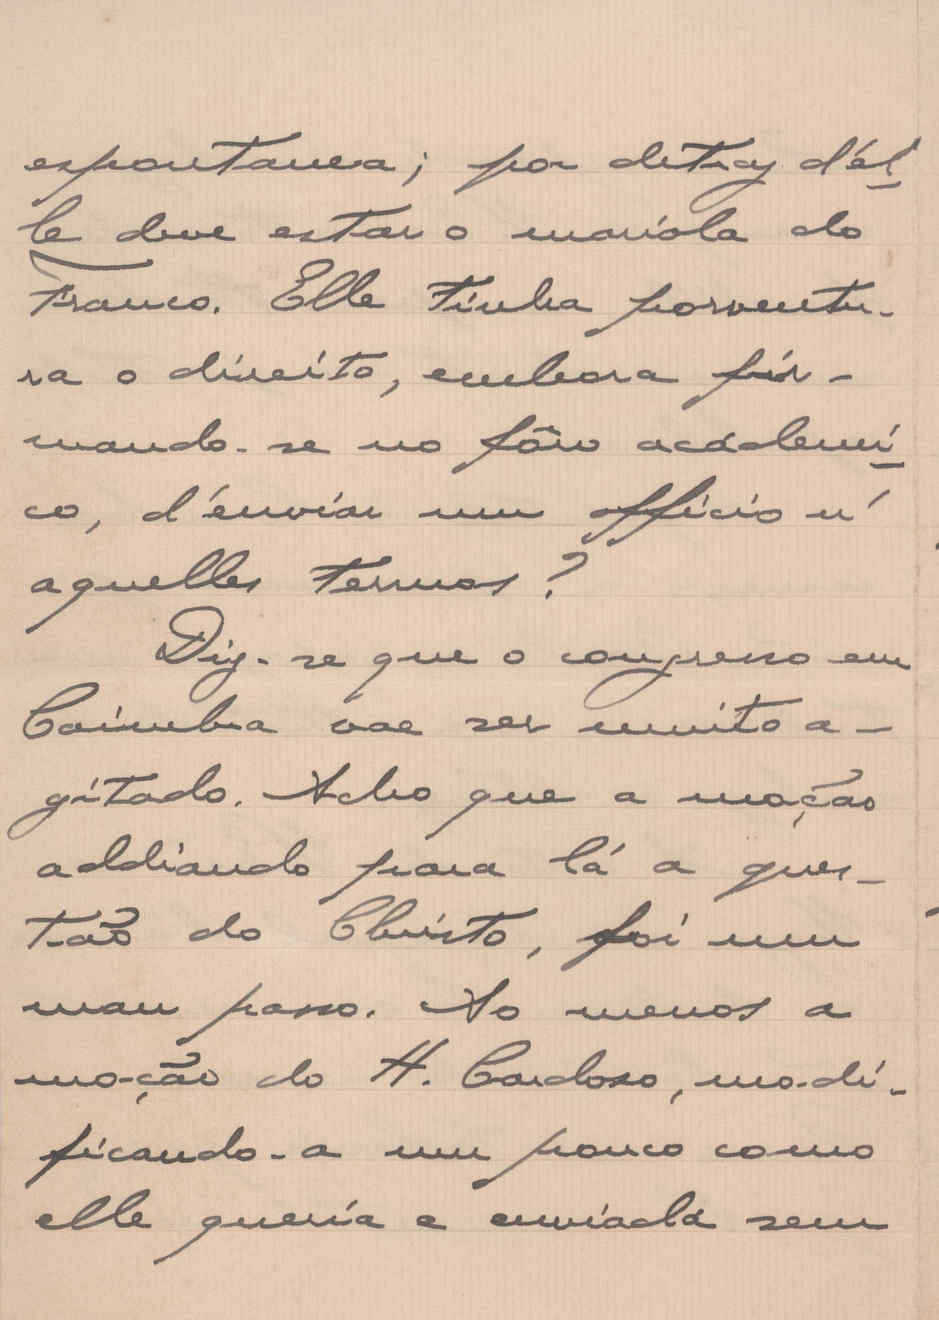 espontanea; por detraz d'el-
le deve estar o mariola do
Franco. Elle tinha porventu-
ra o direito, embora fir-
mando-se no fôro academi-
co, d'enviar um officio n'
aquelles termos?
Diz-se que o congresso em
Coimbra vae ser muito a-
gitado. Acho que a moção
addiando para lá a ques-
tão do Christo, foi um
mau passo. Ao menos a
moção do H. Cardoso, modi-
ficando-a um pouco como
elle queria e enviada sem